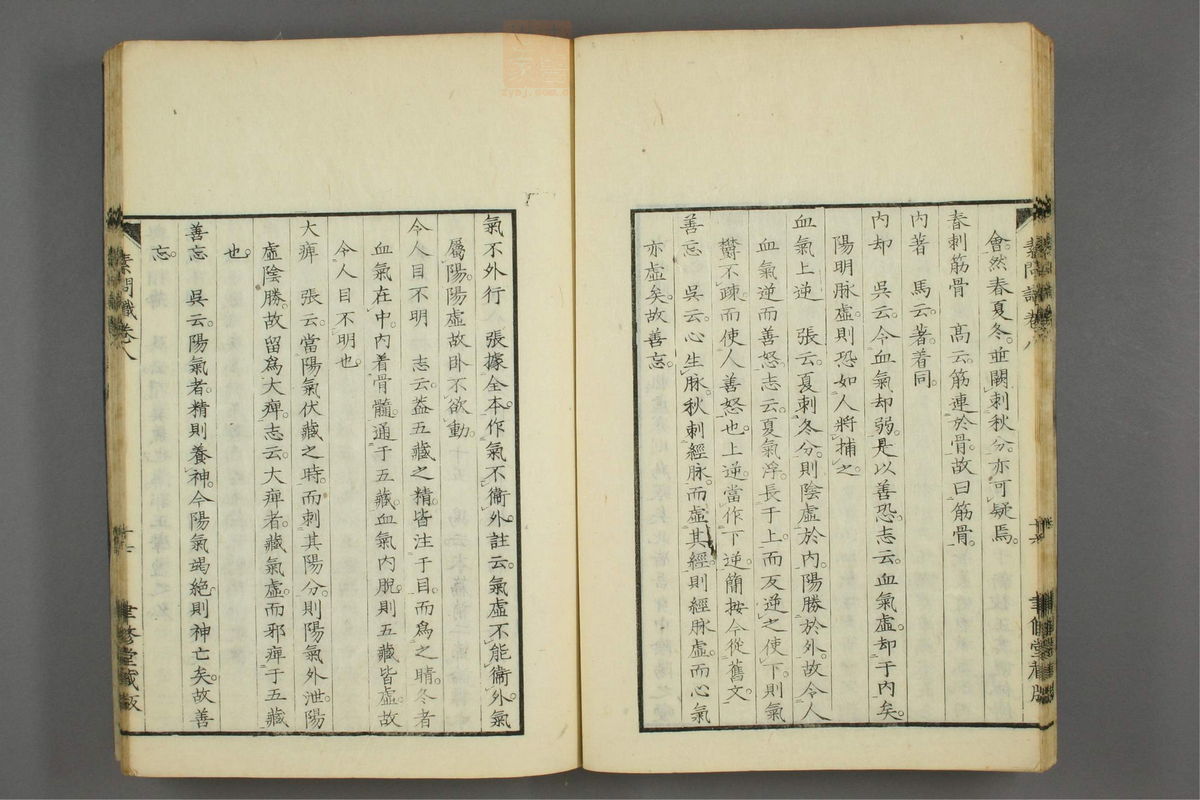 會然春夏冬並闕刺秋分亦可疑焉。
春刺筋骨　高云。筋連於骨。故曰筋骨。
内著　馬云。著。着同。
内却　吳云。今血氣却弱。是以善恐。志云。血氣虛。却于内矣。
陽明脉虛。則恐如人將捕之。
血氣上逆　張云。夏刺冬分。則陰虛於内。陽勝於外。故令人
血氣逆而善怒。志云。夏氣浮長于上。而反逆之使下。則氣
欝不疎。而使人善怒也。上逆。當作下逆。簡按今從舊文。
善忘　吳云。心生脉。秋刺經脉。而虛其經。則經脉虛。而心氣
亦虛矣。故善忘。
氣不外行　張據全本作氣不衞外。註云。氣虛不能衞外。氣
屬陽。陽虛故卧不欲動。
令人目不明　志云。葢五藏之精。皆注于目。而爲之睛。冬者
血氣在中。内着骨髓。通于五藏。血氣内脫。則五藏皆虛。故
令人目不明也。
大痺　張云。當陽氣伏藏之時。而刺其陽分。則陽氣外泄。陽
虛陰勝。故留爲大痺。志云。大痺者。藏氣虛。而邪痺于五藏
也。
善忘　吳云。陽氣者。精則養神。今陽氣竭絶。則神亡矣。故善
忘。
素問識卷八
聿修堂藏版